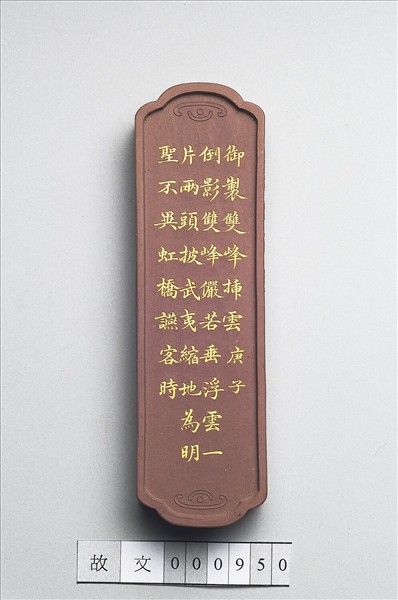 御製雙峰揷雲庚子
倒影雙峰儼若垂浮雲一
片兩頭披武夷縮地為明
聖不異虹橋讌客時
故文000950